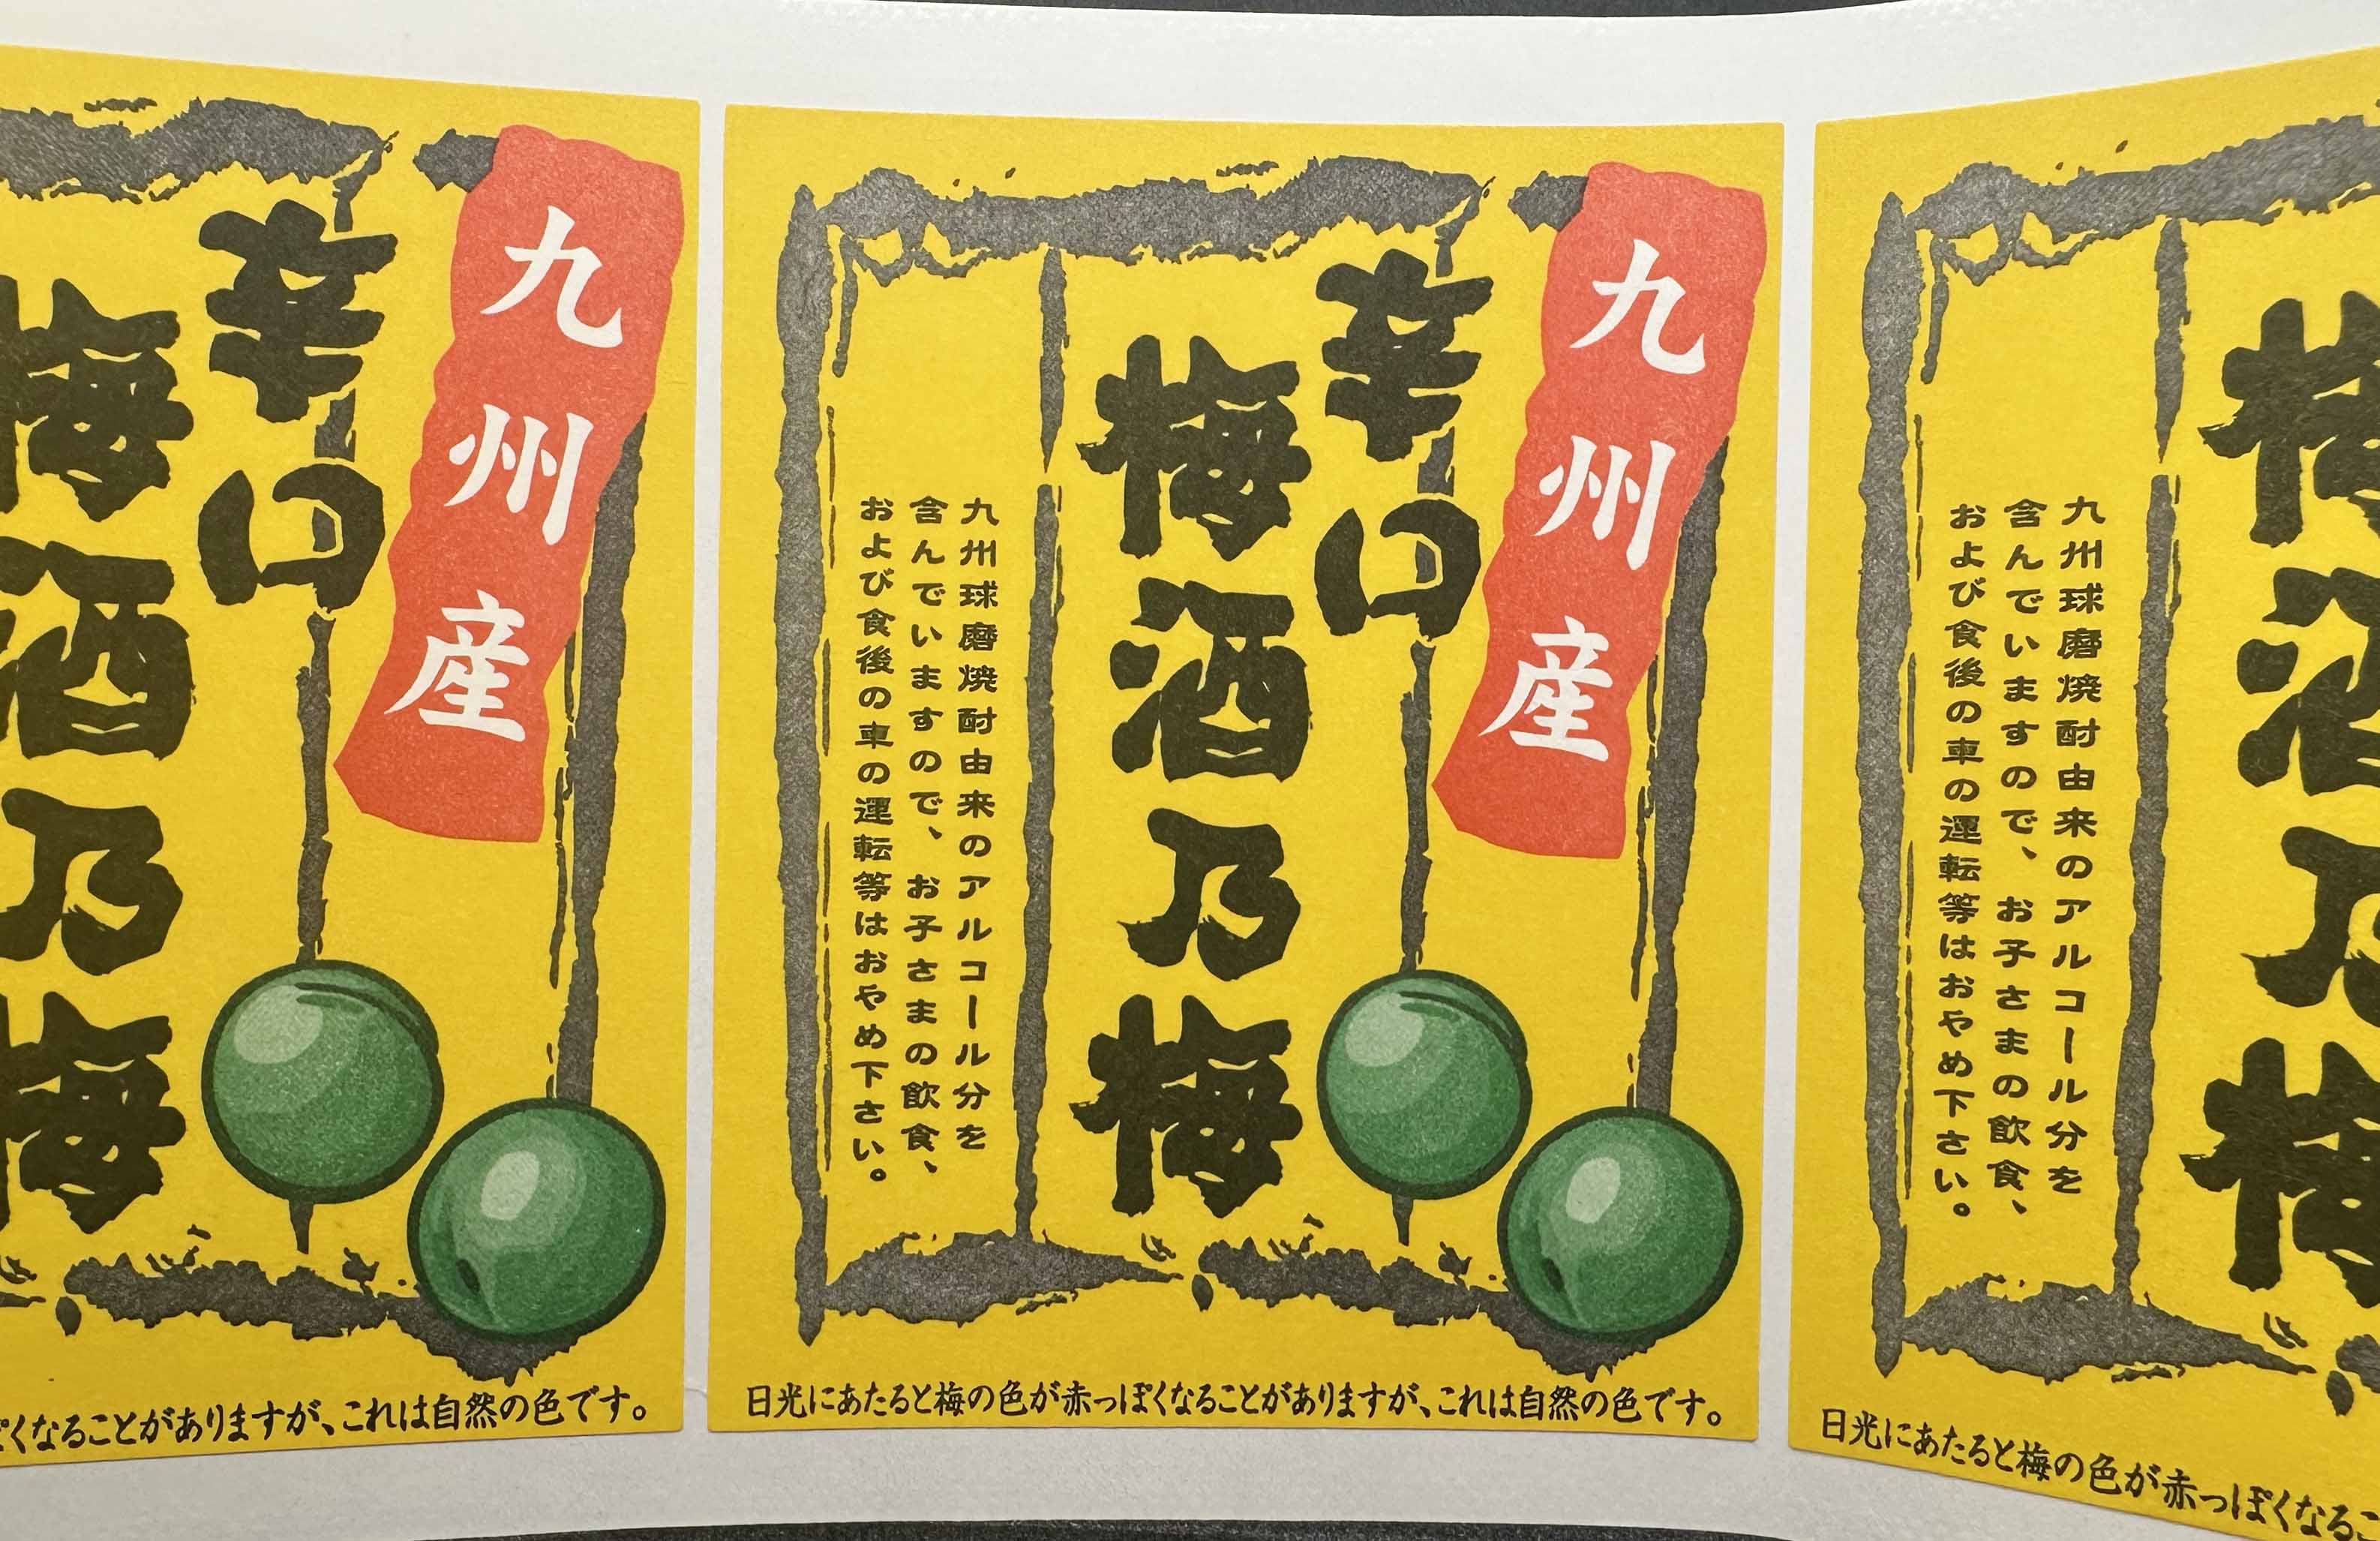 九州産
辛口
梅酒乃梅
日光にあたると梅の色が赤っぽくなることがありますが、これは自然の色です。
九州産
辛口
梅酒乃梅
九州球磨焼酎由来のアルコール分を
含んでいますので、お子さまの飲食、
および食後の車の運転等はおやめ下さい。
日光にあたると梅の色が赤っぽくなることがありますが、これは自然の色です。
梅酒乃梅
九州球磨焼酎由来のアルコール分を
含んでいますので、お子さまの飲食、
および食後の車の運転等はおやめ下さい。
日光にあたると梅の色が赤っぽくなるこ